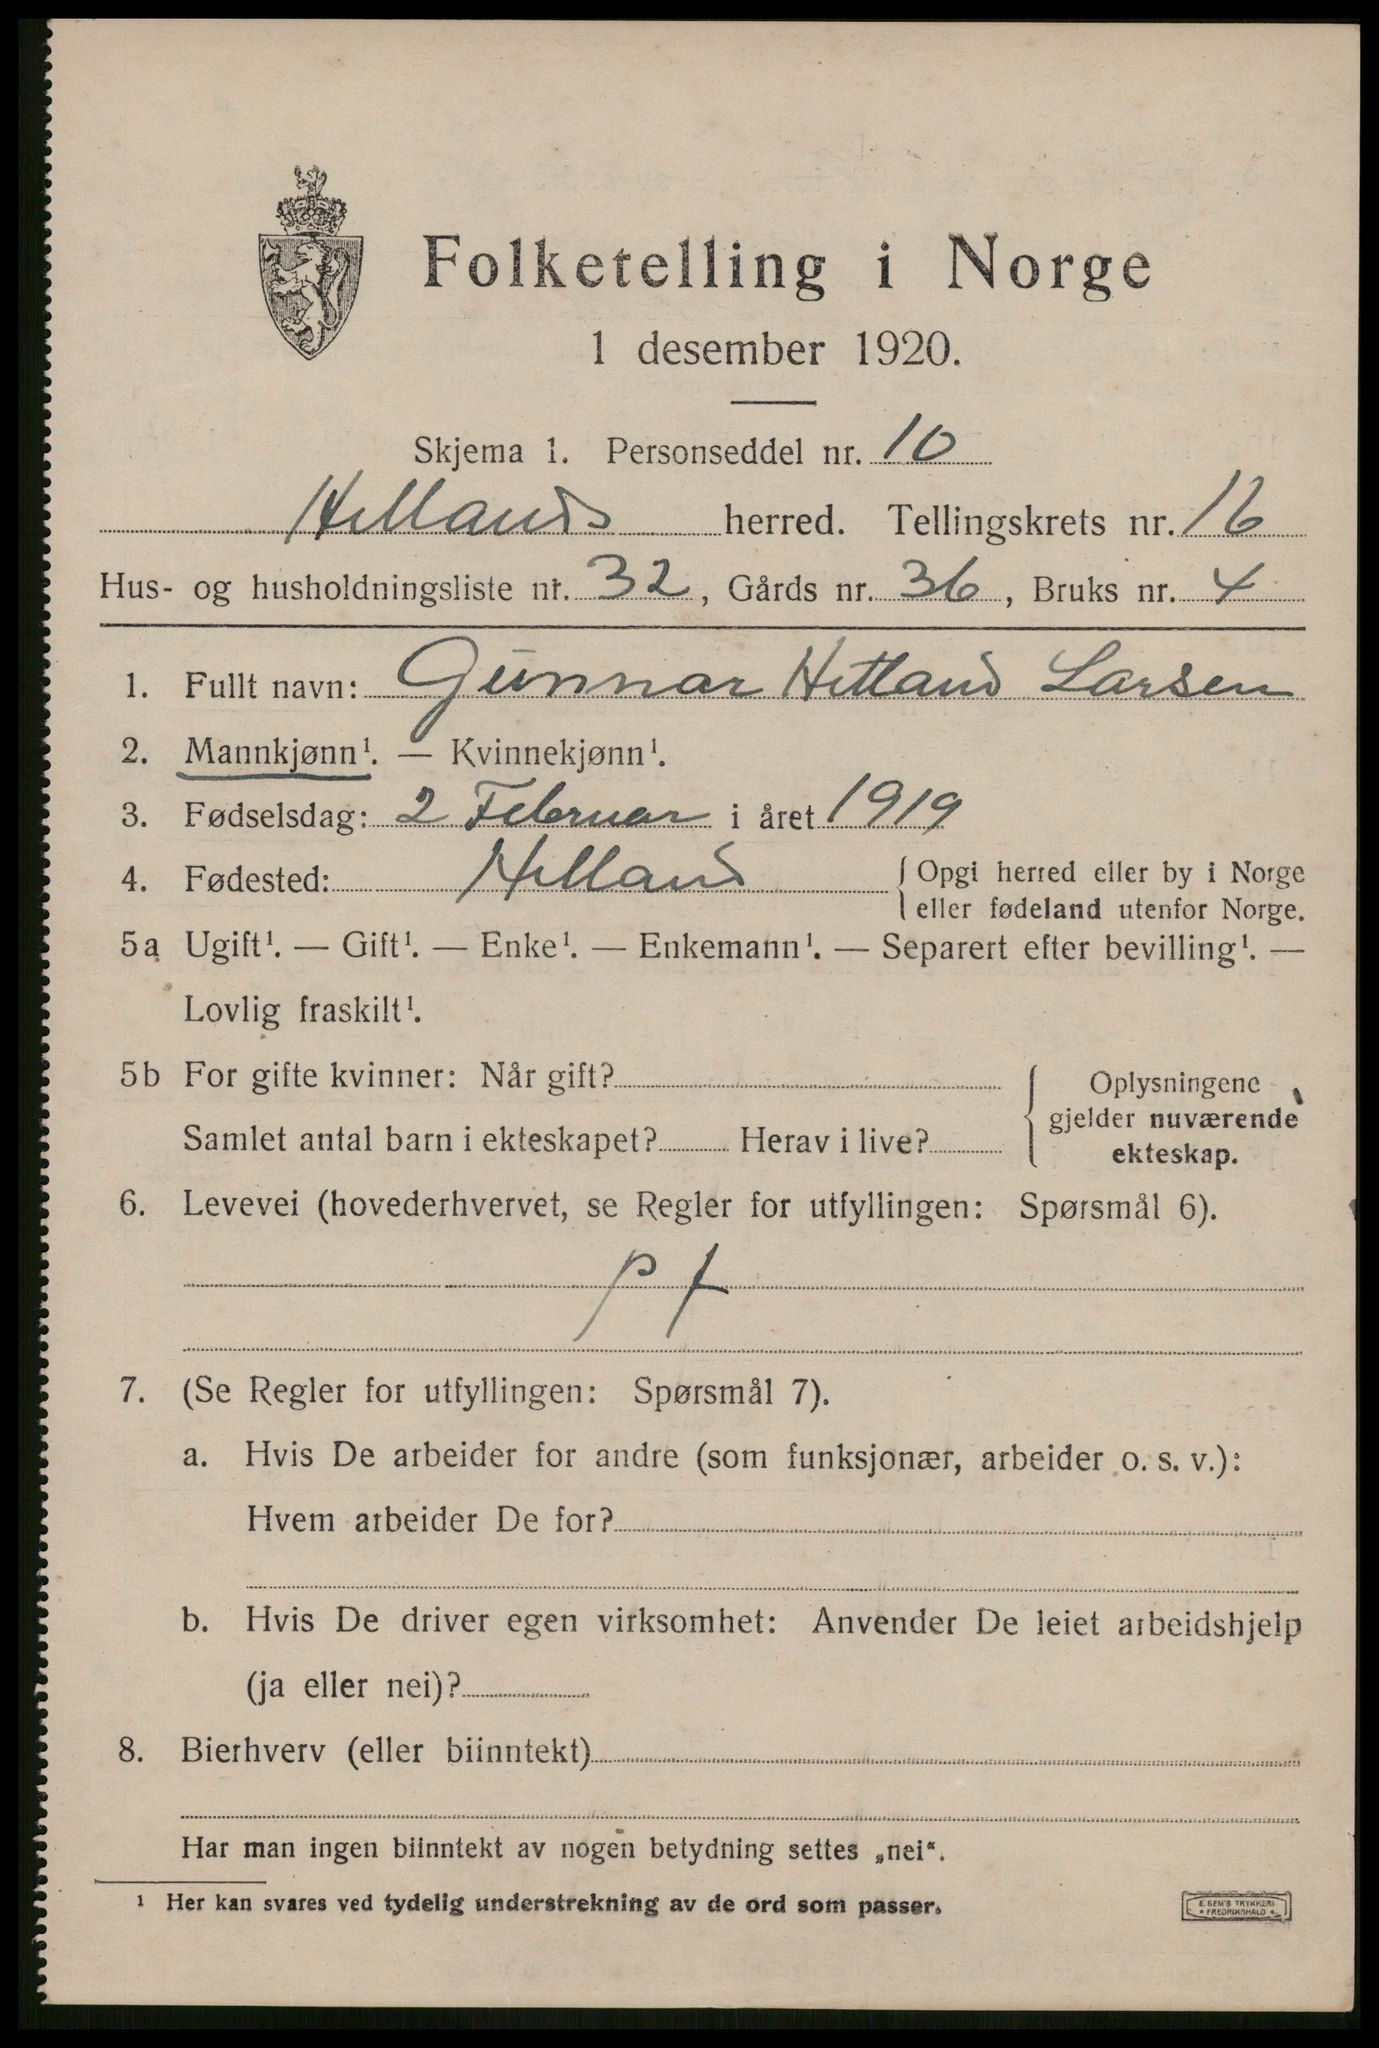 Folketelling i Norge
1 desember 1920.
Skjema 1. Personseddel nr. 10
Hetlands herred. Tellingskrets nr. 16
Hus- og husholdningsliste nr. 32, Gårds nr. 36, Bruks nr. 4
1. Fullt navn: Gunnar Hetland Larsen
2. Mannkjønn¹. — Kvinnekjønn¹.
3. Fødselsdag: 2 Februar i året 1919
4. Fødested: Hetland { Opgi herred eller by i Norge
eller fødeland utenfor Norge.
5a Ugift¹. — Gift¹. — Enke¹. — Enkemann¹. — Separert efter bevilling¹. —
Lovlig fraskilt¹.
5b For gifte kvinner: Når gift? { Oplysningene
gjelder nuværende
Samlet antal barn i ekteskapet? Herav i live? ekteskap.
6. Levevei (hovederhvervet, se Regler for utfyllingen: Spørsmål 6).
p f
7. (Se Regler for utfyllingen: Spørsmål 7).
a. Hvis De arbeider for andre (som funksjonær, arbeider o. s. v.):
Hvem arbeider De for?
b. Hvis De driver egen virksomhet: Anvender De leiet arbeidshjelp
(ja eller nei)?
8. Bierhverv (eller biinntekt)
Har man ingen biinntekt av nogen betydning settes „nei“.
¹ Her kan svares ved tydelig understrekning av de ord som passer.
E. SEM'S TRYKKERI
* FREDRIKSHALD *